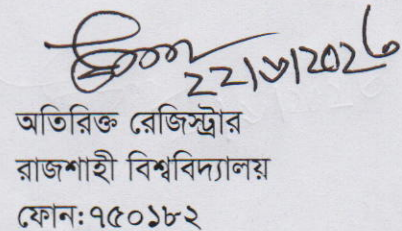 অতিরিক্ত রেজিস্ট্রার
রাজশাহী বিশ্ববিদ্যালয়
ফোন: ৭৫০১৮২